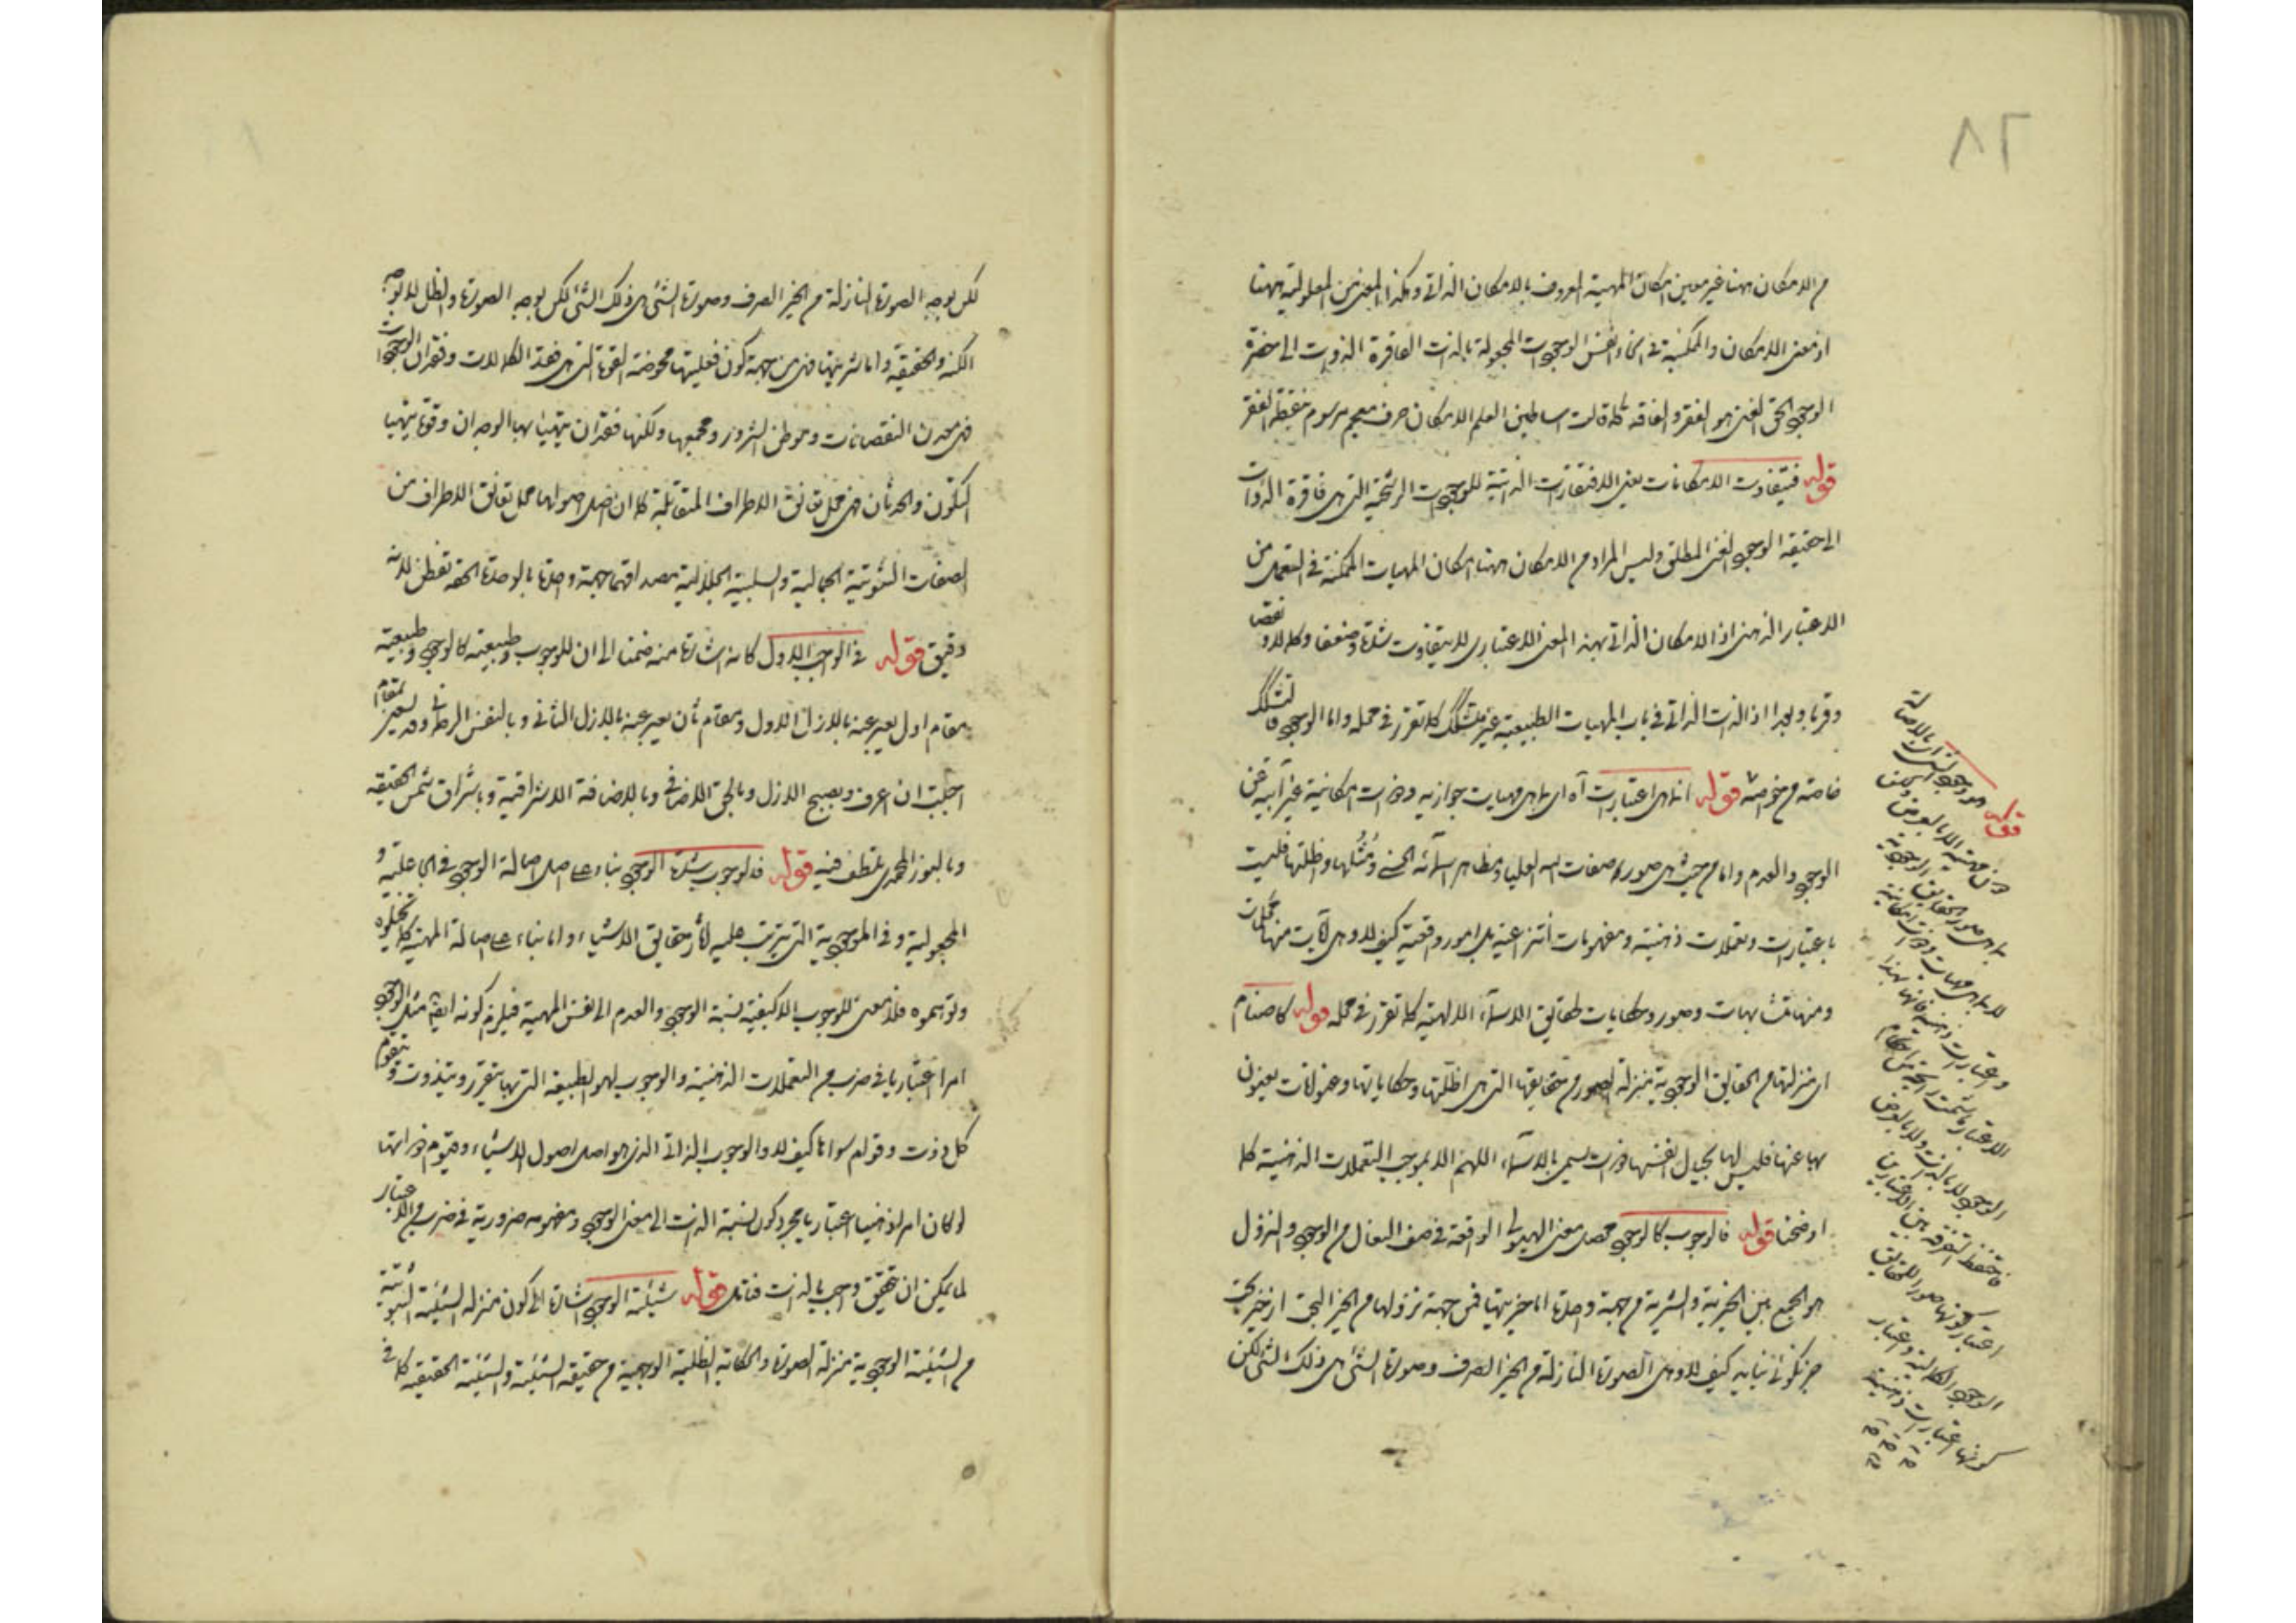 ٨٢
من الامكان ههنا غير معنى امكان المهية المعروف بالامكان الذاتي وهكذا المعنى من المعلولية ههنا
اذ معنى الامكان والممكنية في انحاء نفس الوجودات المجعولة بالذات الفاقرة الذوات الى حضرة
الوجود الحق الغنى هو الفقر والفاقه كما قالت اساطين العلم الامكان حرف معجم مرسوم بنقطة الفقر
قوله فتيفاوت الامكانات يعنى الافتقارات الذاتية للوجودات الرشحية التي هى فاقرة الذوات
الى حقيقه الوجود الغنى المطلق وليس المراد من الامكان ههنا امكان المهيات الممكنة في التعمل من
الاعتبار الذهنى اذ الامكان الذاتى بهذا المعنى الاعتبارى لا يتفاوت شدة وضعفا وكمالا ونقصا
وقربا وبعدا اذ الذات الذاتى في باب المهيات الطبيعية غير متشكك كما تقرر في محله واما الوجود فالتشكك
خاصته من خواصه قوله انما هى اعتبارات آه اى بما هى مهيات جوازيه وذوات امكانية غير آبيه عن
الوجود والعدم واما من حيث هى صور صفات الله العليا ومظاهر اسمائه الحسنى ومثلها واظلتها فليست
باعتبارات وتعملات ذهنية ومفهومات انتزاعية بل امور واقعية كيف لا وهى آيات منها محكمات
ومنها متشابهات وصور وحكايات لحقايق الاسماء الالهية كما تقرر في محله قوله كاصنام
اى منزلتها من الحقايق الوجودية بمنزلة الصور من حقايقها التي هى اظلتها وحكاياتها وعنوانات يعنون
بها عنها فليس لها بحيال انفسها ذوات يسمى بالاسماء اللهم الا بموجب التعملات الذهنية كما
اوضحنا قوله فالوجوب كالوجود محصل معنى الهيولى الواقعة في صف النعال من الوجود والنزول
هو الجمع بين الخيرية والشرية من جهة واحدة اما خيريتها فمن جهة نزولها من الخير البحت اذ خير بحت
خير نكونى نيابه كيف لا وهى الصورة النازلة من الخير الصرف وصورة الشئ هى ذلك الشئ لكن
قوله هو وجود اشياء بالاصالة
ومن مهية الا بالعرض ومن
بما هى صور الحقايق الوجودية
لا بما هى مهيات وذوات امكانية
واعتبارات ذهنية فانها بهذا
الاعتبار ما شمت رائحة من احكام
الوجود لا بالذات ولا بالعرض
فاحتفظ بالتفرقة بين الاعتبارين
اعتبار كونها صور الحقايق
الوجود الكمالية واعتبار
كونها اعتبارات ذهنية
لكن بوجه الصورة النازلة من الخير الصرف وصورة الشئ هى ذلك الشئ لكن بوجه الصورة والظل لا بوجه
الكنه والحقيقة واما شريتها فهى من جهة كون فعليتها محوضة القوة التي هى فقد الكمالات وفقدان الوجودات
فهى معدن النقصانات وموطن الشرور ومجمعها ولكنها فقدان يتهيأ بها الوجدان وقوة يتهيأ
التكون والحدثان فهى محل تعانق الاطراف المتقابلة كما ان اصل اصولها محل تعانق الاطراف من
الصفات الثبوتية الجمالية والسلبية الجلالية مصداقهما جهة واحدة بالوحدة الحقه تفطن لانه
دقيق قوله في الوجوب الاول كانه اشارة منه ضمنا الى ان للوجوب طبيعة كالوجود وطبيعته
مقام اول يعبر عنه بالازل الاول ومقام ثان يعبر عنه بالازل الثانى وبالنفس الرحمانى وقد يعبر بمقام
احببت ان اعرف وبصبح الازل وبالحق الاضافى وبالاضافة الاشراقية وباشراق شمس الحقيقه
وبالنور المحمدى تلطف فيه قوله فالوجوب شدة الوجود بناء على اصل اصالة الوجود في الجاعلية و
المجعولية وفى الموجودية التي يترتب عليه آثار حقايق الاشياء واما بناء على اصالة المهية كما تخيلوه
وتوهموه فلا معنى للوجوب الا كيفية نسبة الوجود والعدم الى نفس المهية فيلزم كونه ايضا مثل الوجود
امرا اعتباريا في ضرب من التعملات الذهنية والوجوب لهو الطبيعة التي بها يتقرر ويتذوت ويتقوم
كل ذى ذات وقوام سواها كيف لا والوجوب الذاتى الذى هو اصل اصول الاشياء وقيوم ذواتها
لو كان امرا ذهنيا اعتباريا بمجرد كون نسبة الذات الى معنى الوجود ومفهومه ضرورية في ضرب من الاعتبار
لما يمكن ان يتحقق واجب بالذات فتامل قوله شيئية الوجود اشارة الى كون منزلة الشيئية الثبوتية
من الشيئية الوجودية بمنزلة الصورة والحكاية الظلية الوهمية من حقيقة الشيئية والشيئية الحقيقيه كما في